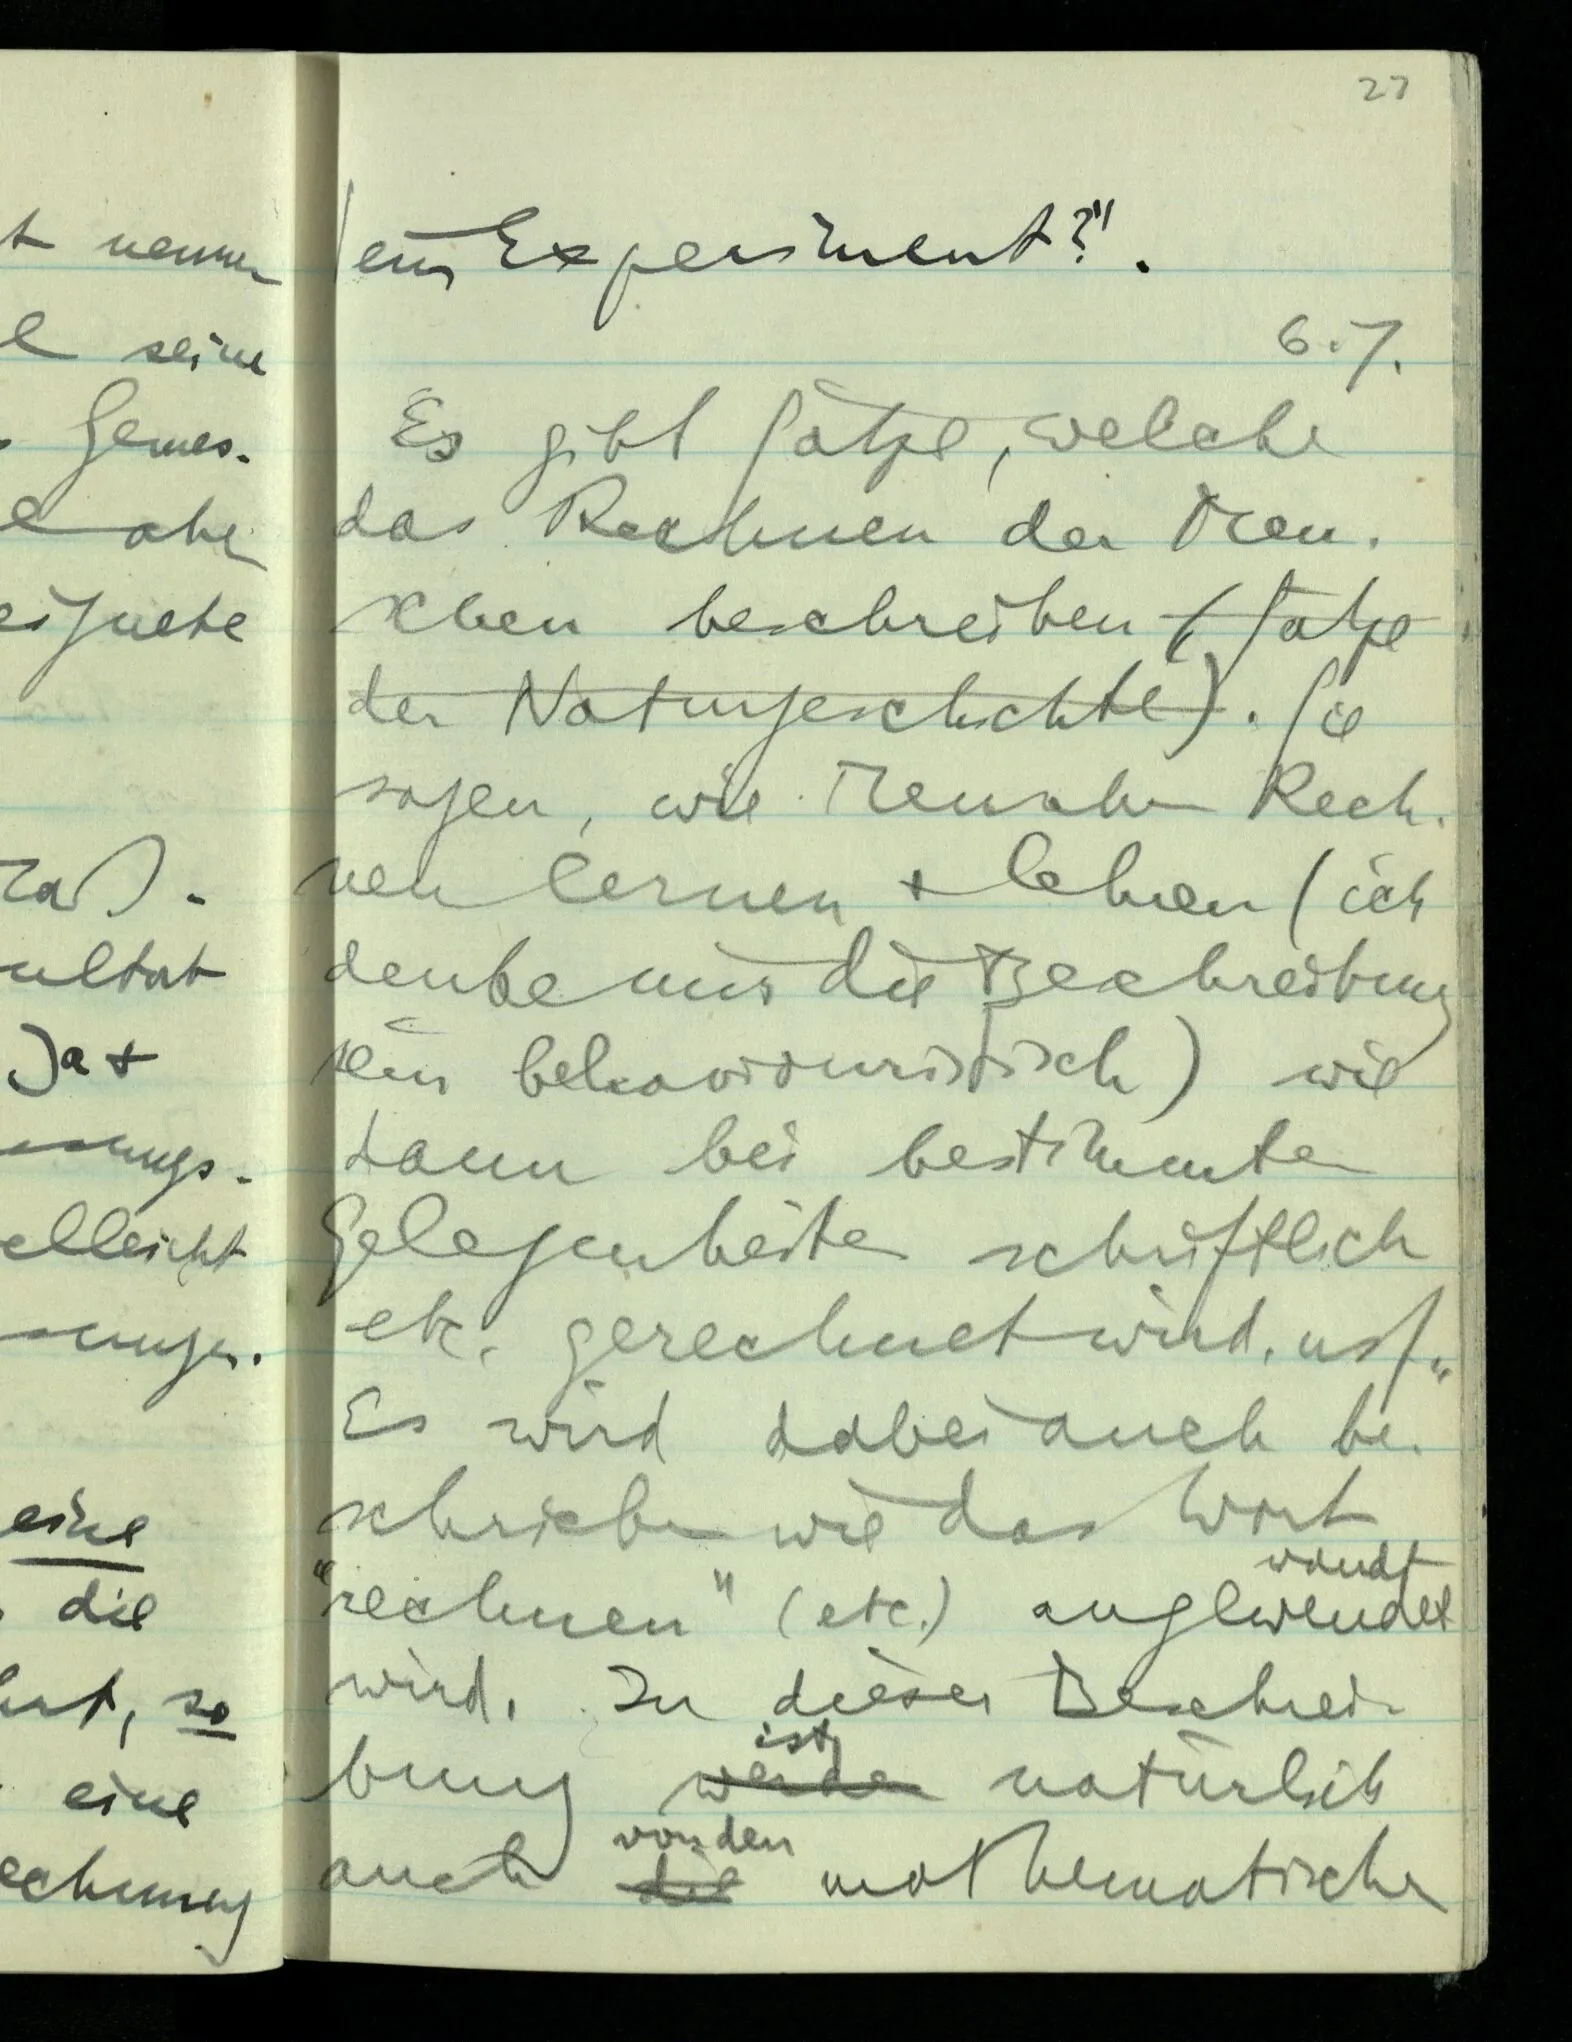 27
ein Experiment?".
6.7.
Es gibt Sätze, welche
das Rechnen der Men-
schen beschreiben (Sätze
der Naturgeschichte). Sie
sagen, wie Menschen Rech-
nen lernen + lehren (ich
denke mir die Beschreibung
rein behaviouristisch) wie
dann bei bestimmten
Gelegenheiten schriftlich
etc. gerechnet wird, usf..
Es wird dabei auch be-
schrieben wie das Wort
wandt
"rechnen" (etc.) angewendet
wird. In dieser Beschrei-
ist
bung werden natürlich
von den
auch die mathematischen
t nennen
seine
Gemes-
aber
eignete
ultat
Ja +
ssungs-
elleicht
eine
die
so
eine
echnung